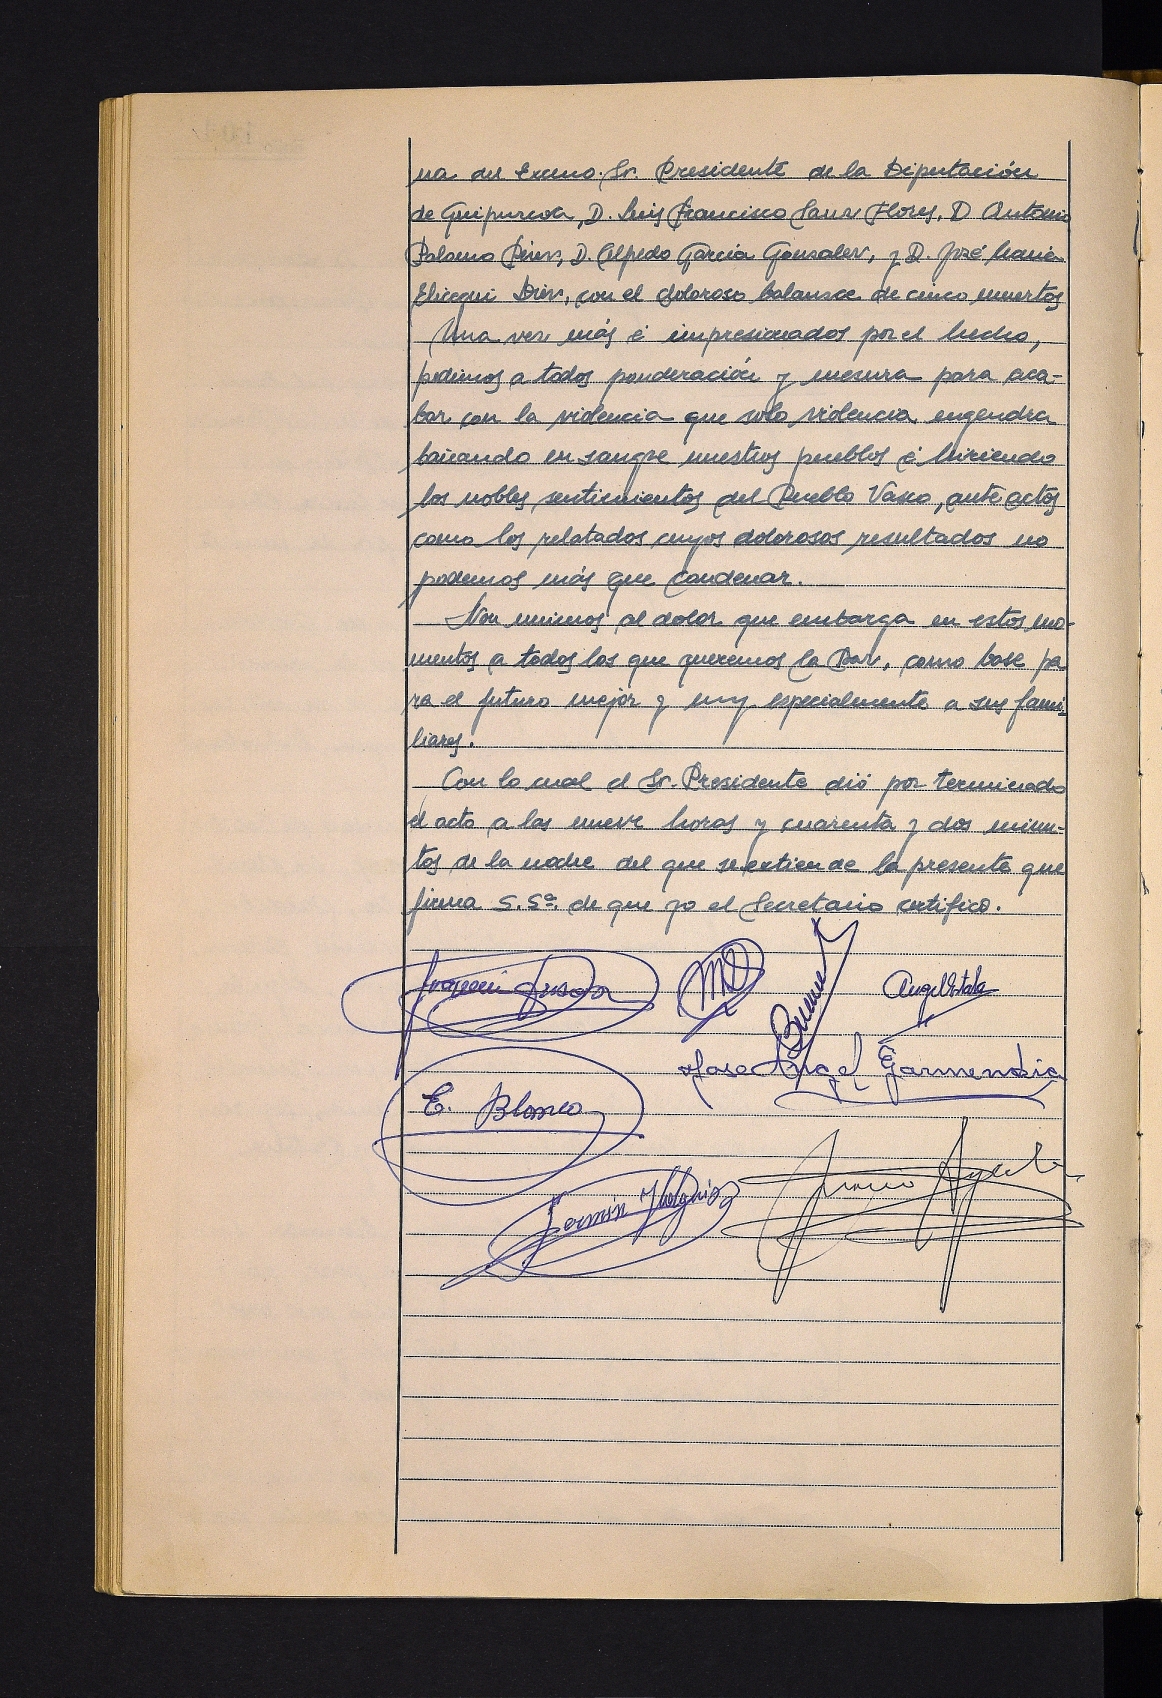 na del Excmo. Sr. Presidente de la Diputación
de Guipuzcoa, D. Luis Francisco Sanz Flores, D Antonio
Palomo Pérez, D. Alfredo García Gonzalez, y D. José María
Elicegui Diez, con el doloroso balance de cinco muertos
Una vez más é impresionados por el hecho,
pedimos a todos ponderación y mesura para aca-
bar con la violencia que solo violencia engendra
bañando en sangre nuestros pueblos é hiriendo
los nobles sentimientos del Pueblo Vasco, ante actos
como los relatados cuyos dolorosos resultados no
podemos más que condenar.
Nos unimos al dolor que embarga en estos mo-
mentos a todos los que queremos la Paz, como base pa-
ra el futuro mejor y muy especialmente a sus fami-
liares.
Con lo cual el Sr. Presidente dió por terminado
el acto a las nueve horas y cuarenta y dos minu-
tos de la noche del que se extiende la presente que
firma S.Sª. de que yo el Secretario certifico.
Joaquin
Jose Angel Garmendia
E. Blanco
Fermin